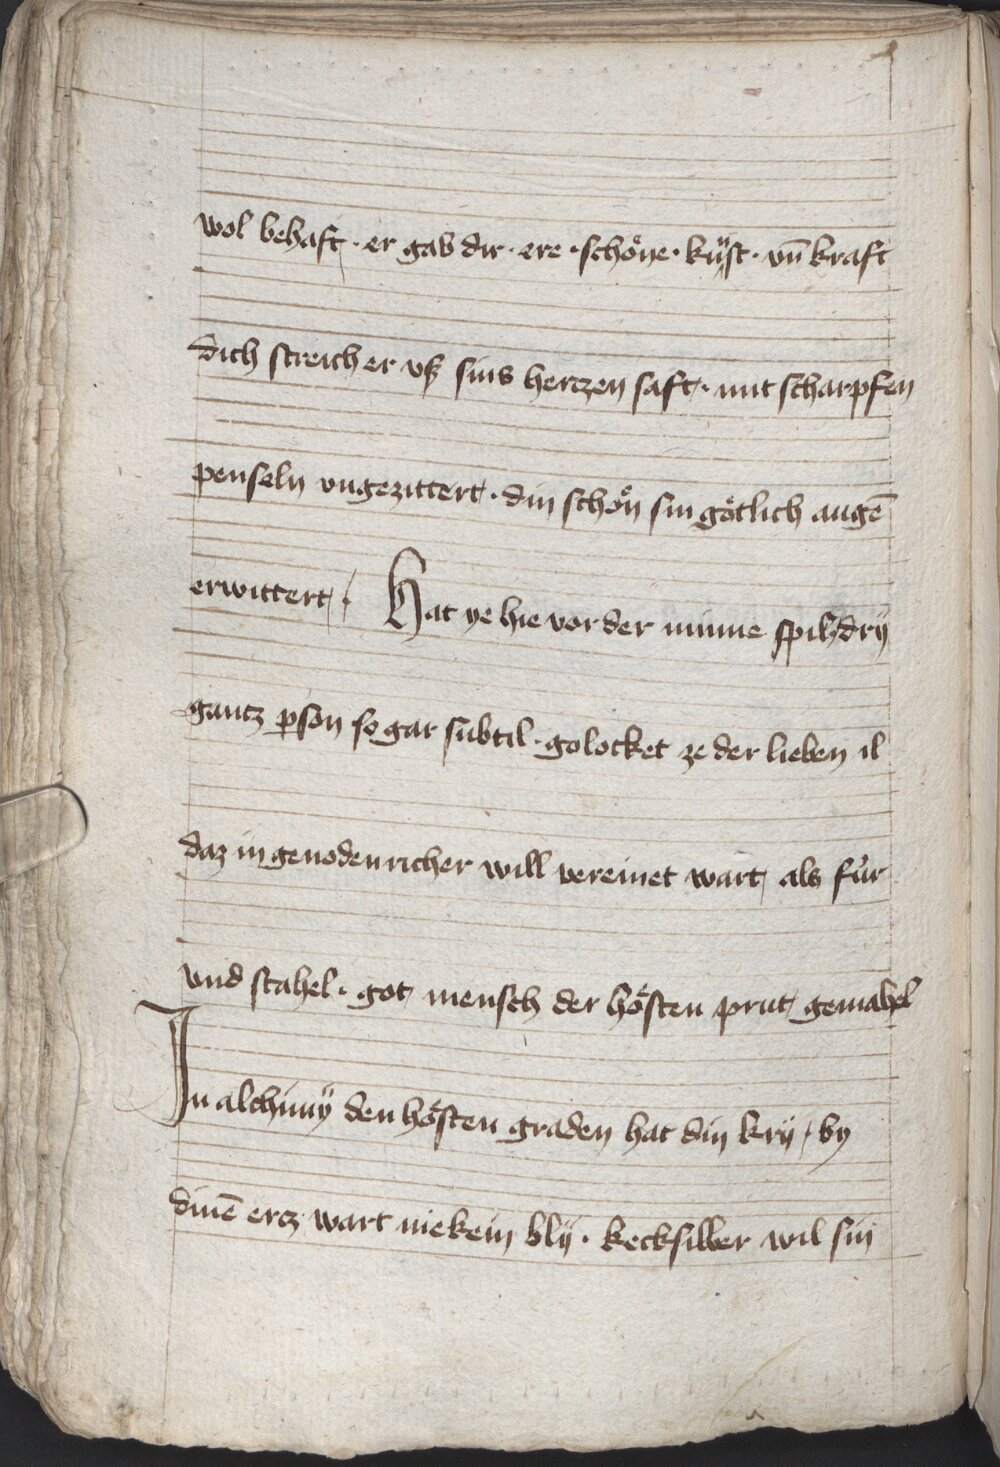 wol behaft · er gab dir · ere · schöne · kűst · vn̄ kraft
dich streich er vß sins herczen saft · mit scharpfen
penseln vngezittert · din schön sin götlich augē
erwittert · Hat ye hie vor der minne spil drÿ
gantz ꝑson so gar subtil · golocket ze der lieben il
daz in genoden richer will vereinet wart als für
vnd stahel · got mensch der hösten prut gemahel
In alchimÿ den hösten graden hat din krÿ / by
dinē ercz wart nie kein blÿ · kecksilber wil sin